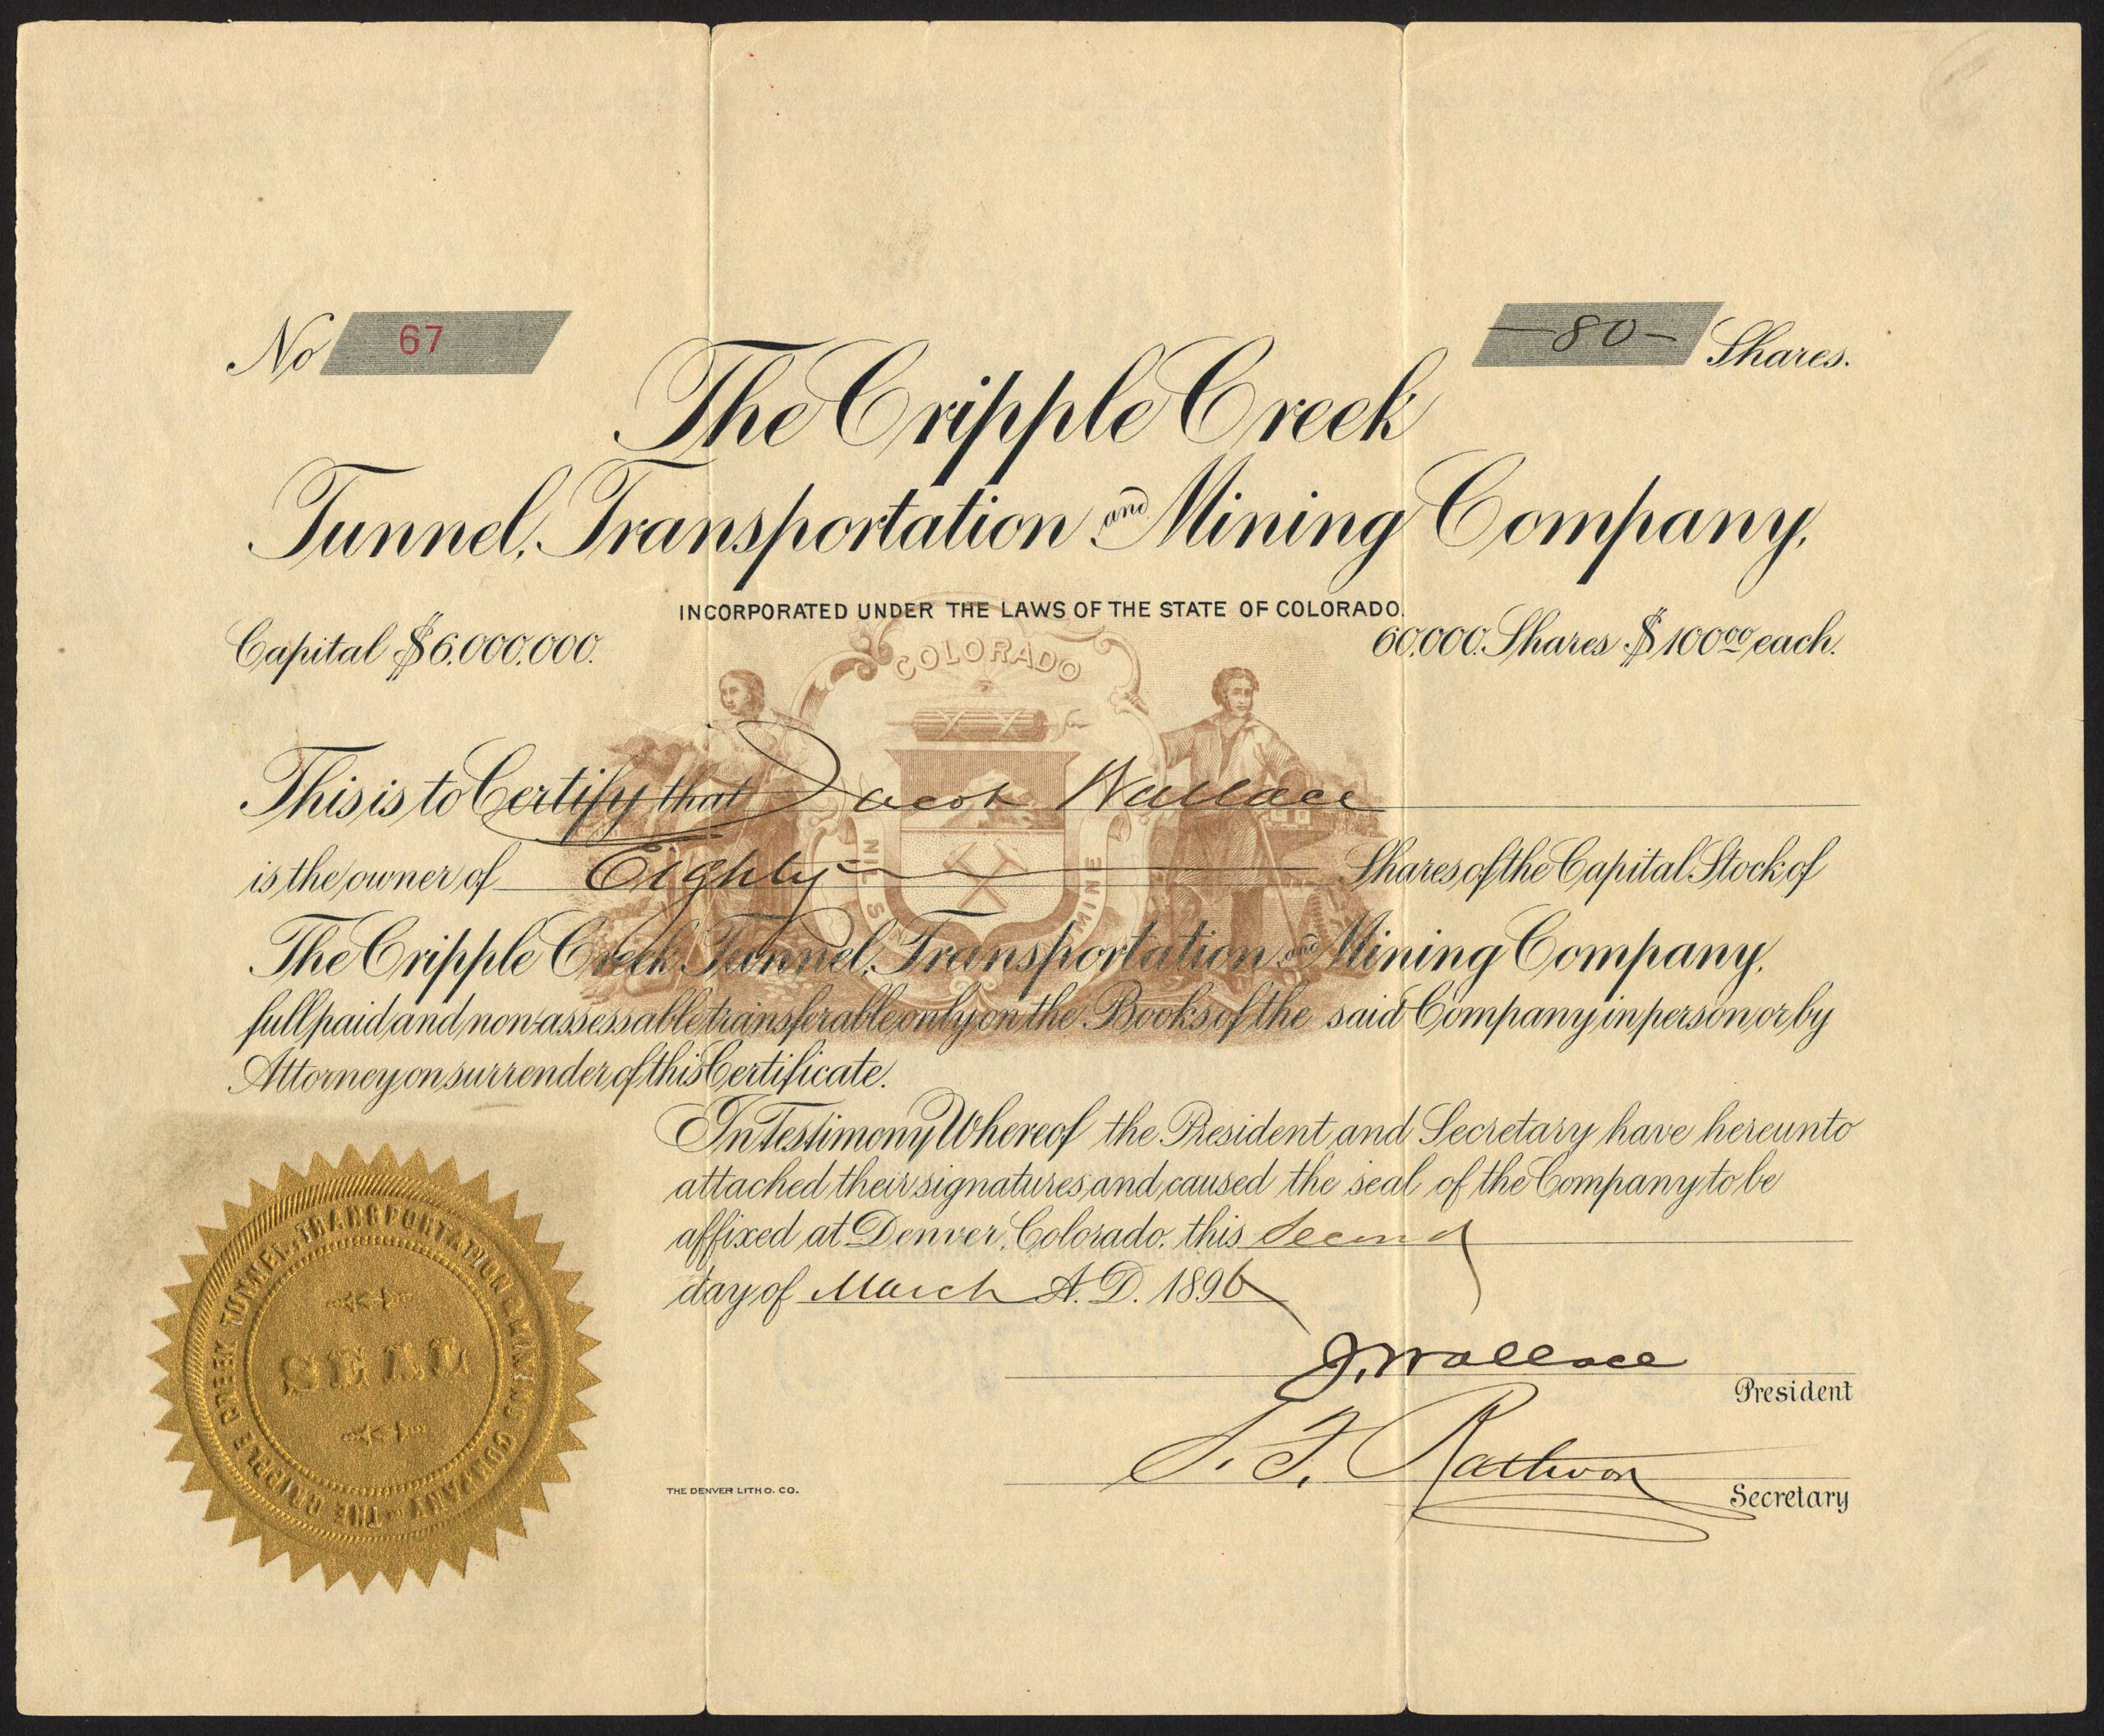 No 67
—80— Shares.
The Cripple Creek
Tunnel, Transportation and Mining Company,
INCORPORATED UNDER THE LAWS OF THE STATE OF COLORADO.
Capital $6,000,000.
60,000 Shares $100 00 each.
COLORADO
This is to Certify that Jacob Wallace
is the owner of Eighty Shares of the Capital Stock of
NIL SINE
The Cripple Creek Tunnel, Transportation and Mining Company,
full paid and non-assessable transferable only on the Books of the said Company in person or by
Attorney on surrender of this Certificate.
In Testimony Whereof the President and Secretary have hereunto
attached their signatures and caused the seal of the Company to be
affixed at Denver, Colorado, this Second
day of March A.D. 1896
J. Wallace
President
Secretary
THE DENVER LITHO. CO.
THE CRIPPLE CREEK TUNNEL, TRANSPORTATION & MINING COMPANY
SEAL